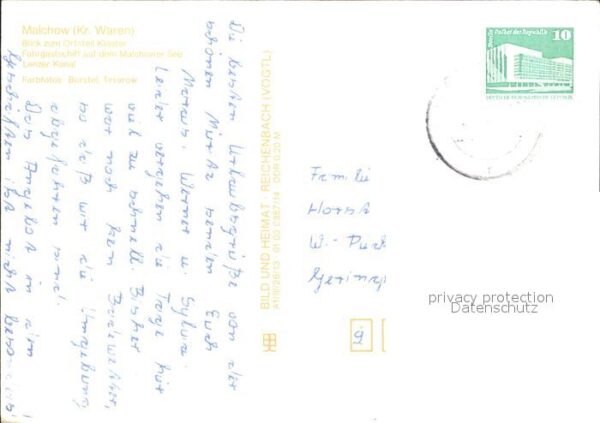 Malchow (Kr. Waren)
Blick zum Ortsteil Kloster
Fahrgastschiff auf dem Malchower See
Lenzer Kanal
Farbfotos: Burstel, Teterow
BILD UND HEIMAT · REICHENBACH (VOGTL)
Die besten Urlaubsgrüße von der
schönen Müritz senden Euch
Werner u. Sylvia.
Leider vergehen die Tage hier
viel zu schnell. Bisher
war noch kein Badewetter,
so daß wir die Umgebung
abgefahren sind.
Das Angebot in den
ist nicht
Familie
Horst
Gering
10
Palast der Republik
Berlin
DEUTSCHE DEMOKRATISCHE REPUBLIK
privacy protection
Datenschutz